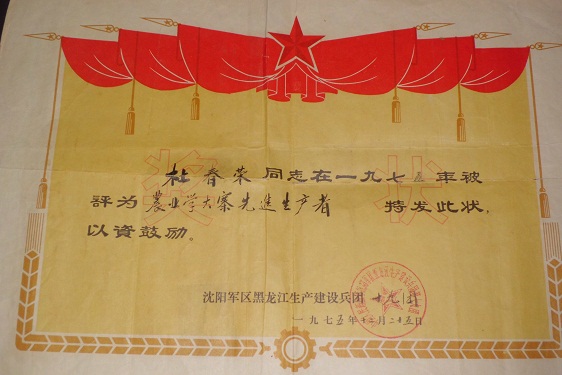 奖状
杜春荣同志在一九七五年被
评为農业学大寨先進生产者 特发此状，
以資鼓励。
沈阳军区黑龙江生产建设兵团十九团
一九七五年十二月二十五日